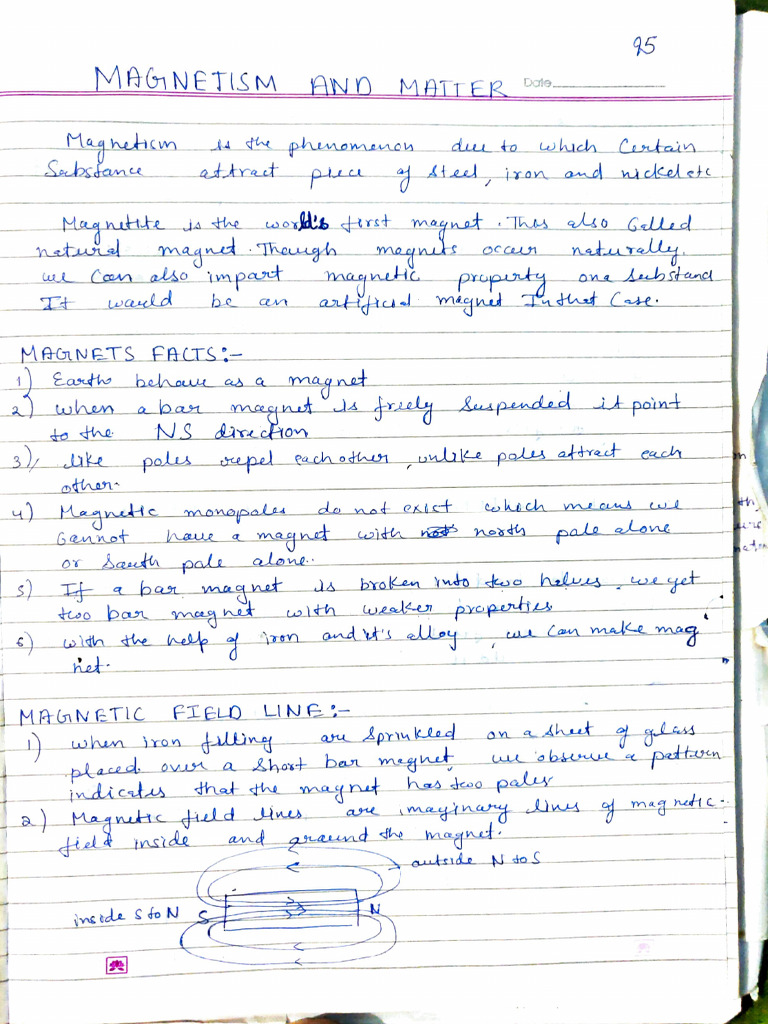 25
MAGNETISM AND MATTER Date
Magnetism is the phenomenon due to which Certain
Substance attract piece of steel, iron and nickel etc
Magnetite is the world's first magnet. Thos also Called
natural magnet. Though magnets occur naturally,
we Can also impart magnetic property one substand
It would be an artificial magnet In that Case.
MAGNETS FACTS:-
1) Earth behave as a magnet
2) when a bar magnet is freely suspended it point
to the NS direction
3) like poles repel each other, unlike poles attract each
other.
4) Magnetic monopoles do not exist which means we
Cannot have a magnet with north pole alone
or South pole alone.
5) If a bar magnet is broken into two halves, we get
two bar magnet with weaker properties
6) with the help of iron and it's alloy, we can make mag
net.
MAGNETIC FIELD LINE:-
1) when iron filling are sprinkled on a sheet of glass
placed over a short bar magnet, we observe a pattern
indicates that the magnet has two poles
2) Magnetic field lines are imaginary lines of magnetic-
field inside and around the magnet.
outside N to S
inside S to N S N